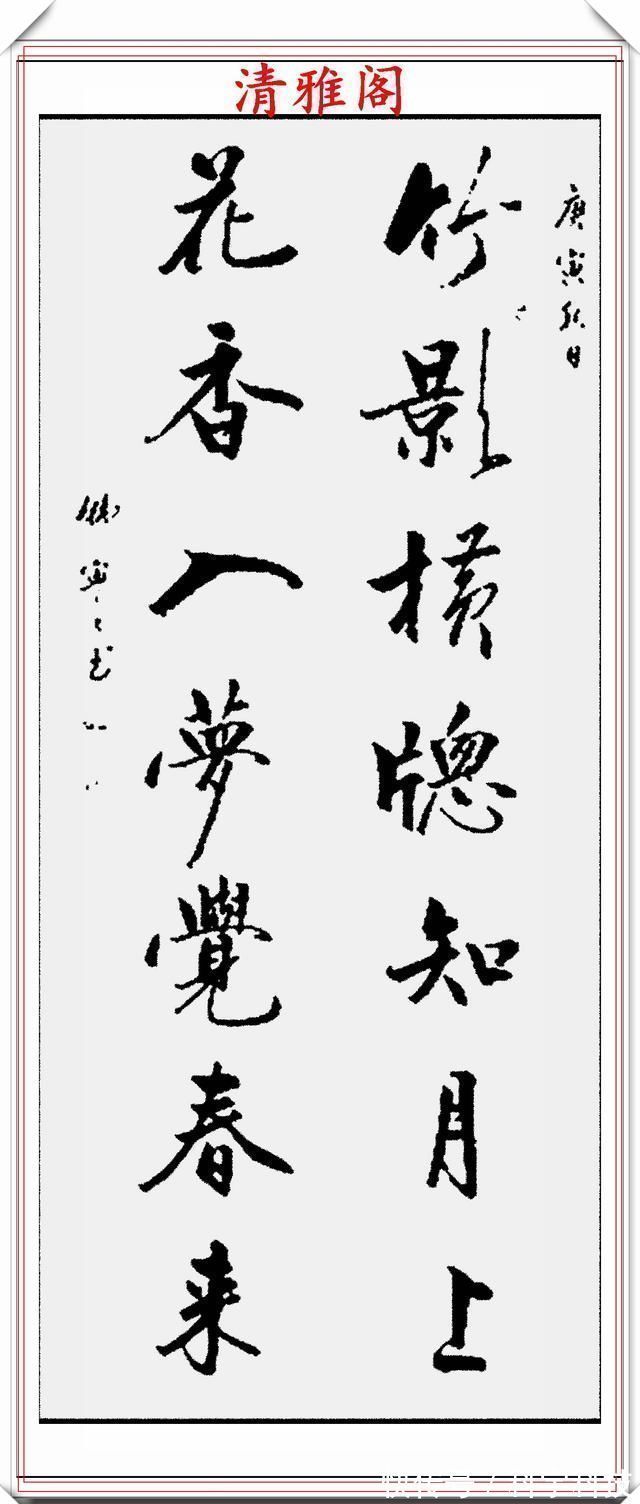 清雅阁
庚寅秋日
竹影横牕知月上
花香入夢覺春来